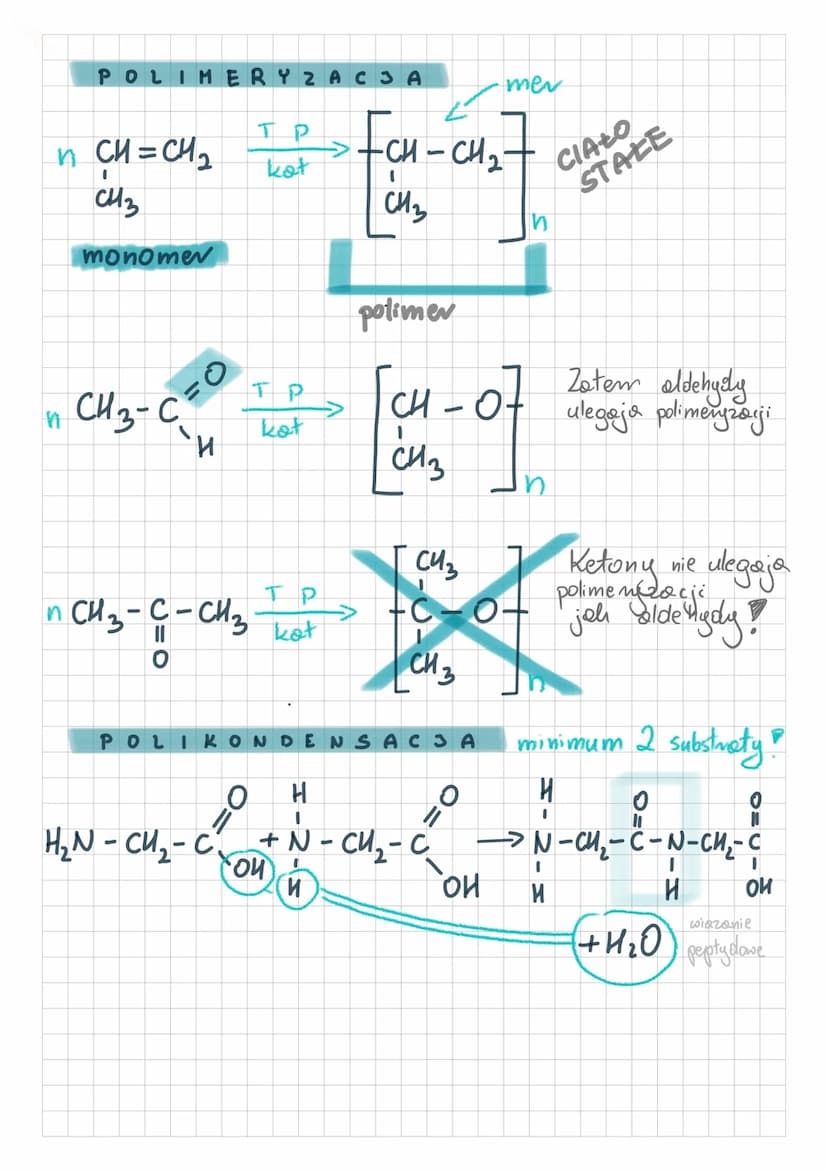 POLIMERYZACJA
mer
n CH=CH2 T P kat [CH-CH2]n
CH3 CH3
CIAŁO
STAŁE
monomer
polimer
n CH3-C=O T P kat [CH-O]n
H CH3
Zatem aldehydy
ulegają polimeryzacji
CH3
n CH3-C-CH3 T P kat [C-O]n
O CH3
Ketony nie ulegają
polimeryzacji
jak aldehydy!
POLIKONDENSACJA minimum 2 substraty!
O H O H O O
H2N-CH2-C + N-CH2-C → N-CH2-C-N-CH2-C
OH H OH H H OH
+H2O
wiązanie
peptydowe